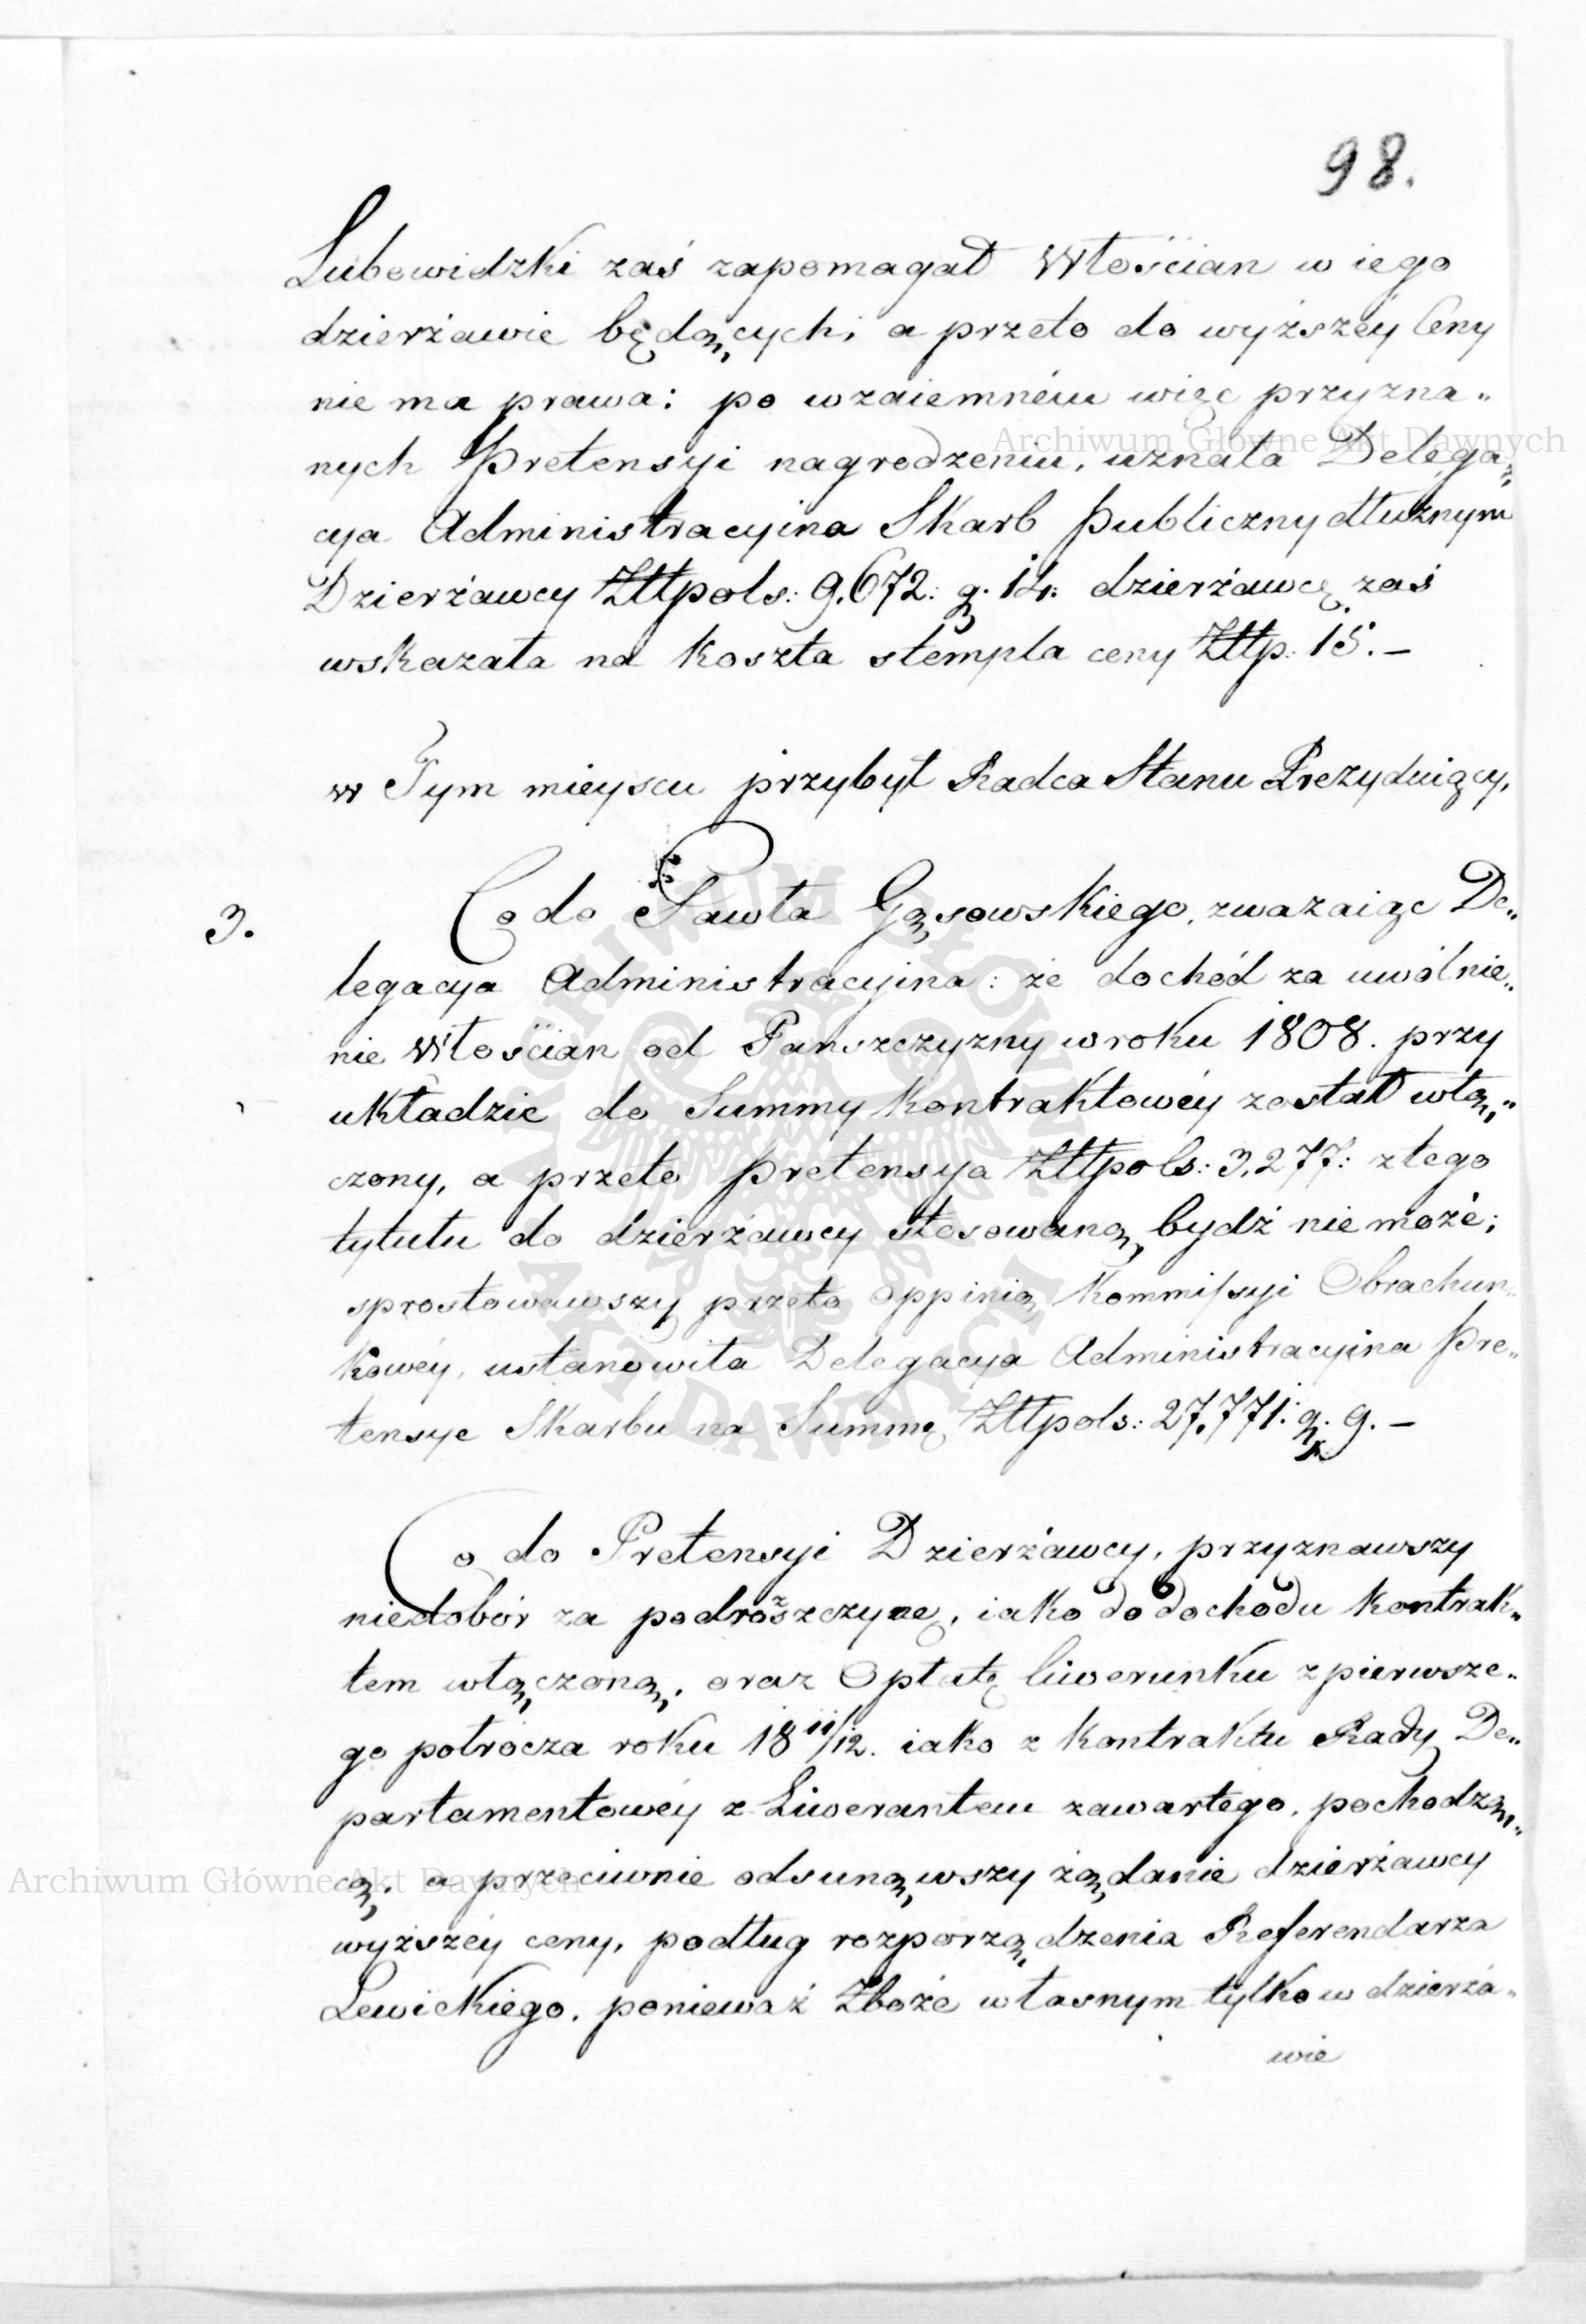 98.
Lubowidzki zaś zapomagał Włościan w iego
dzierżawie będących, a przeto do wyższéy Ceny
nie ma prawa: po wzaiemném więc przyzna„
nych Pretensyi nagrodzeniu, uznała Delega„
cya Administracyina Skarb Publiczny dłużnym
Dzierżawcy Złłpols: 9,672: g. 14. dzierżawcę zaś
wskazała na koszta stempla ceny Złłp: 15. –
w Tym mieyscu przybył Radca Stanu Prezyduiący,
3. Co do Pawła Gąsowskiego, zważaiąc De„
legacya Administracyina: że dochód za uwólnie„
nie Włościan od Panszczyzny w roku 1808. przy
układzie do Summy kontraktowéy został włą„
czony, a przeto Pretensya Złłpols: 3,277: z tego
tytułu do dzierżawcy stosowaną bydź nie może;
sprostowawszy przeto Oppinią Kommissyi Obrachun„
kowéy, ustanowiła Delegacya Administracyina Pre„
tensye Skarbu na Summę Złłpols: 27,771: g. 9. –
Co do Pretensyi Dzierżawcy, przyznawszy
niedobór za podróższczyznę, iako do dochodu kontrak„
tem włączoną, oraz Opłatę liwerunku z pierwsze„
go półrocza roku 18 11/12. iako z kontraktu Rady De„
partamentowéy z Liwerantem zawartego, pochodzą„
cą, a przeciwnie odsunąwszy żądanie dzierżawcy
wyższéy ceny, podług rozporządzenia Referendarza
Lewickiego, ponieważ Zboże własnym tylko w dzierża„
wie
Archiwum Główne Akt Dawnych
Archiwum Główne Akt Dawnych
ARCHIWUM GŁÓWNE AKT DAWNYCH